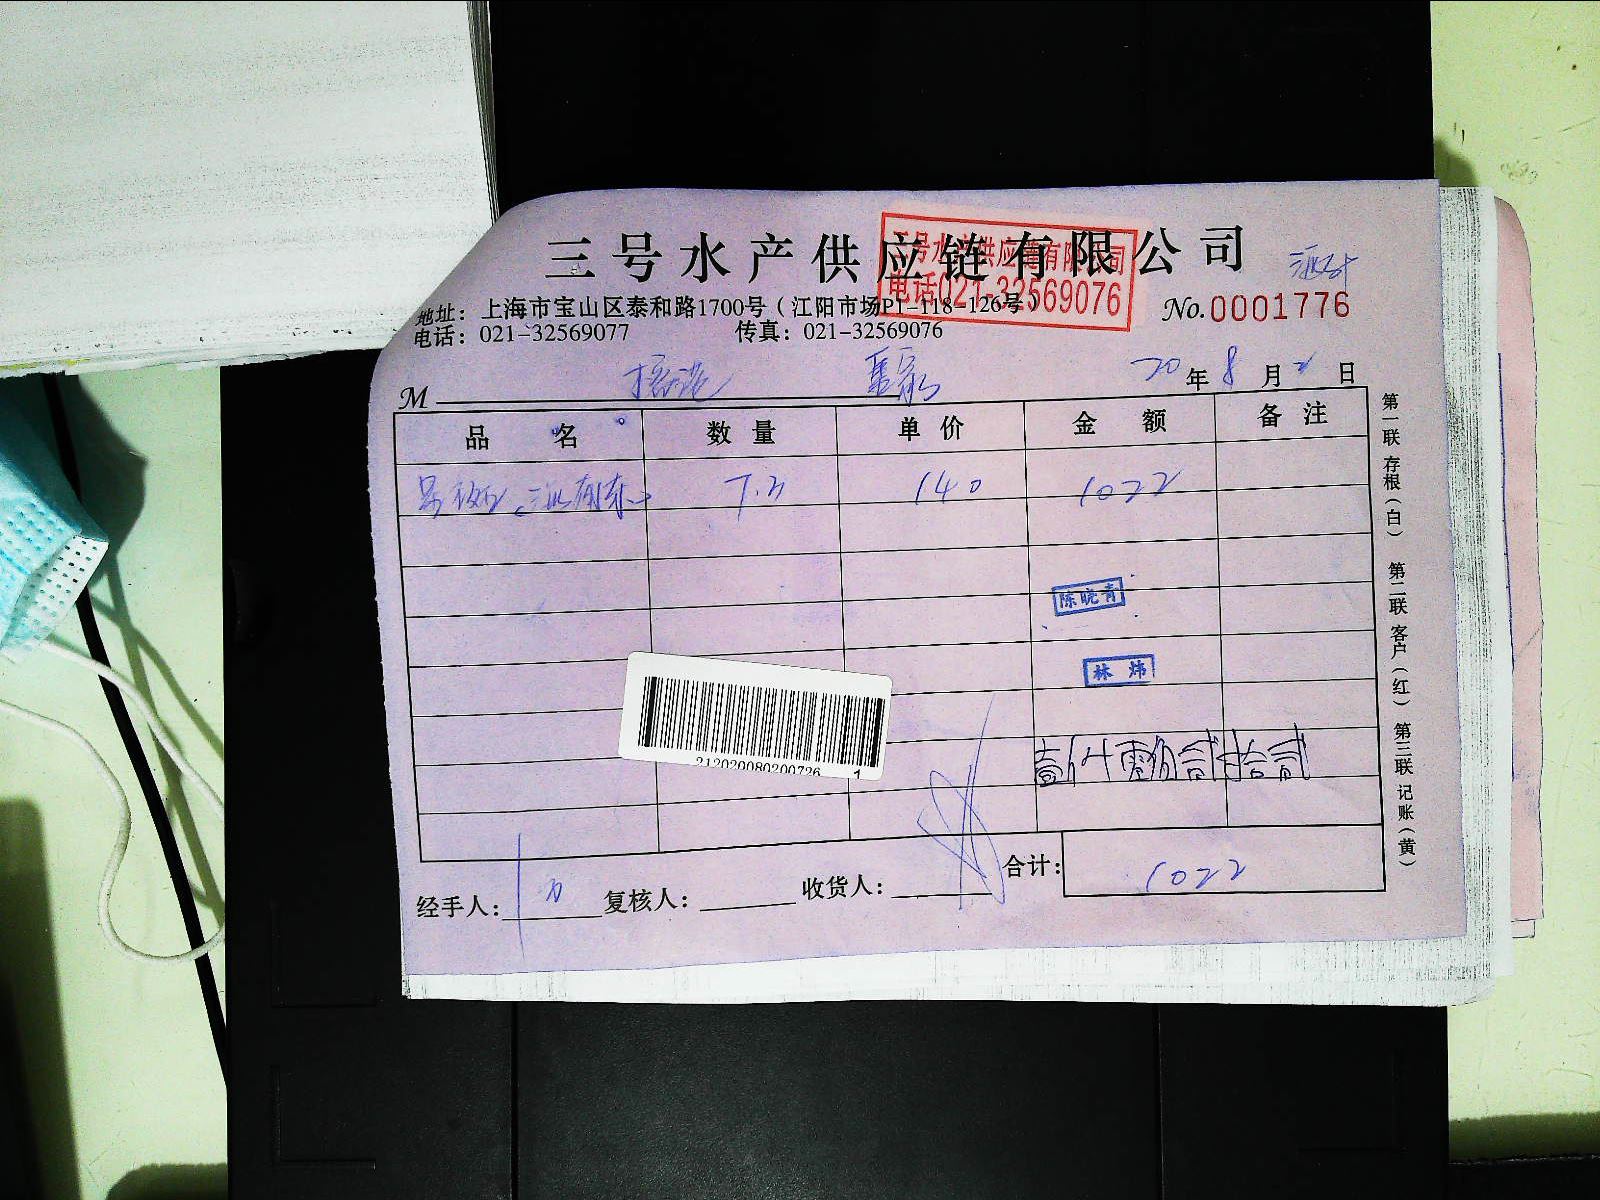 三号水产供应链有限公司
三号水产供应链有限公司
电话021-32569076
地址：上海市宝山区泰和路1700号（江阳市场P1-118-126号）
No.0001776
电话：021-32569077 传真：021-32569076
M
20年8月2日
品名 数量 单价 金额 备注
7.3 140 1022
陈晓青
林炜
壹仟零佰贰拾贰
212020080200726 1
合计：1022
经手人： 复核人： 收货人：
第一联 存根（白） 第二联 客户（红） 第三联 记账（黄）